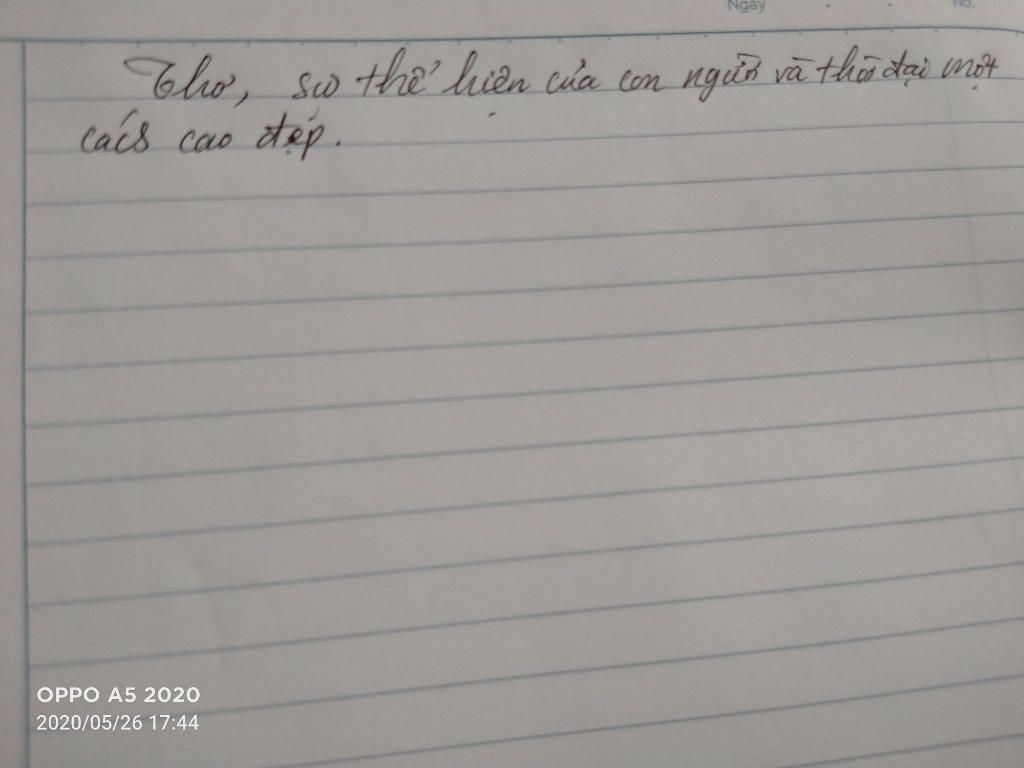 Ngày
No.
Thơ, sự thể hiện của con người và thời đại một
cách cao đẹp.
OPPO A5 2020
2020/05/26 17:44